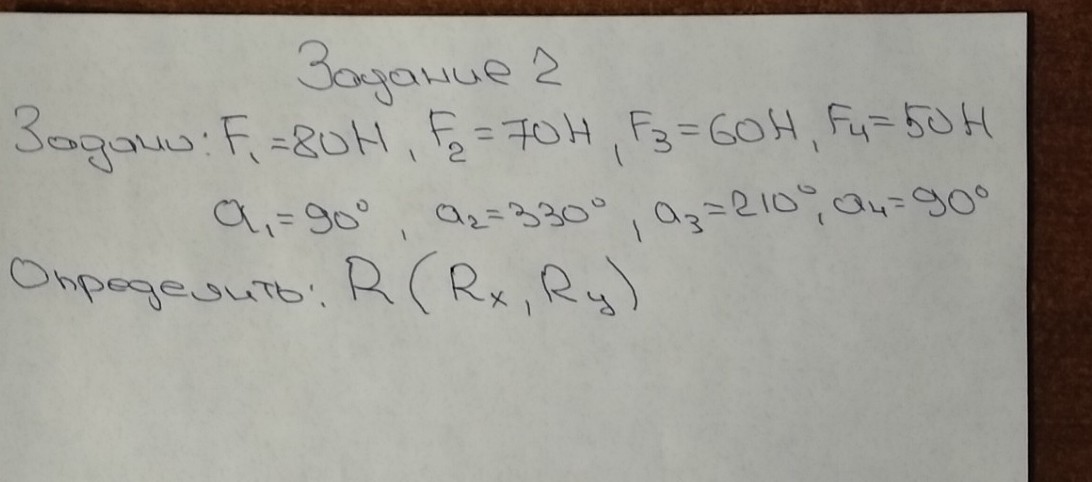 Задание 2
Задано: F₁=80Н, F₂=70Н, F₃=60Н, F₄=50Н
α₁=90°, α₂=330°, α₃=210°, α₄=90°
Определить: R (Rx, Ry)